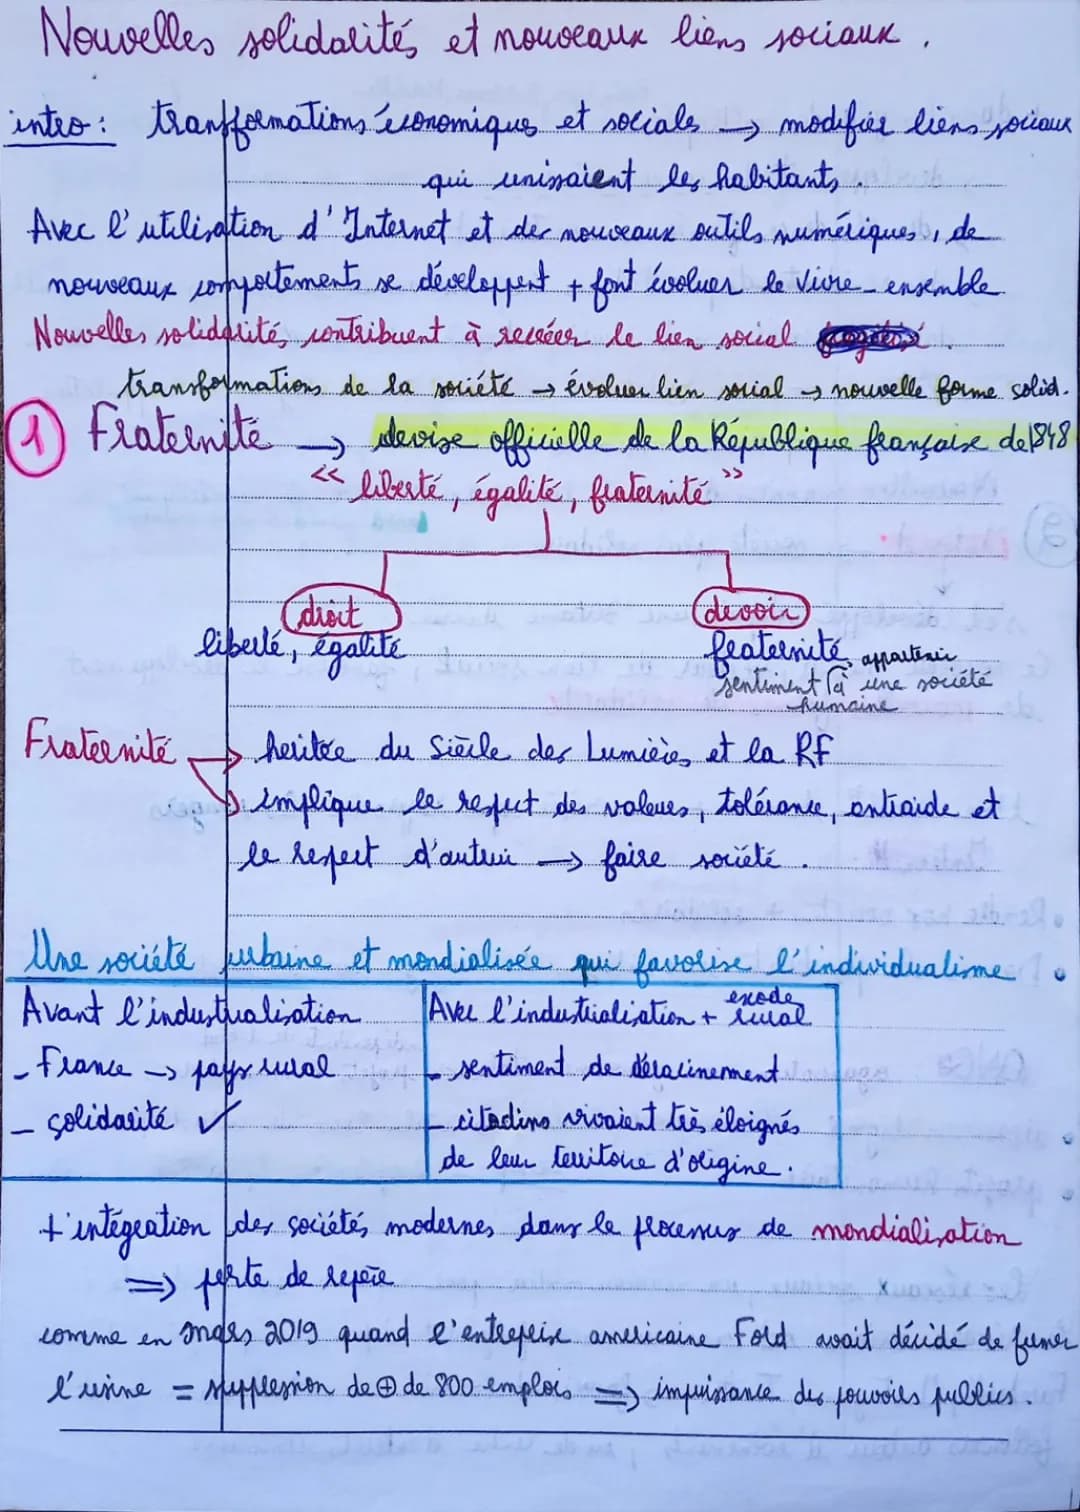 Nouvelles solidarités et nouveaux liens sociaux.
intro: transformations économiques et sociales → modifier liens sociaux
qui unissaient les habitants.
Avec l'utilisation d'Internet et des nouveaux outils numériques, de
nouveaux comportements se développent + font évoluer le vivre-ensemble
Nouvelles solidarités contribuent à recréer le lien social .
transformations de la société → évoluer lien social → nouvelle forme solid.
1 Fraternité → devise officielle de la République française de 1848
<< liberté, égalité, fraternité >>
droit devoir
liberté, égalité fraternité
sentiment appartenir à une société
humaine
Fraternité → heritée du Siècle des Lumières et la RF
→ implique le respect des valeurs, tolérance, entraide et
le respect d'autrui → faire société.
Une société urbaine et mondialisée qui favorise l'individualisme
Avant l'industrualisation Avec l'industrialisation + exode rural
- France → pays rural - sentiment de déracinement
- solidarité ✓ - citadins vivaient très éloignés
de leur territoire d'origine.
+ intégration des sociétés modernes dans le processus de mondialisation
⇒ perte de repère
comme en mars 2019 quand l'entreprise americaine Ford avait décidé de fermer
l'usine = suppression de ⊕ de 800 emplois ⇒ impuissance des pouvoirs publics.